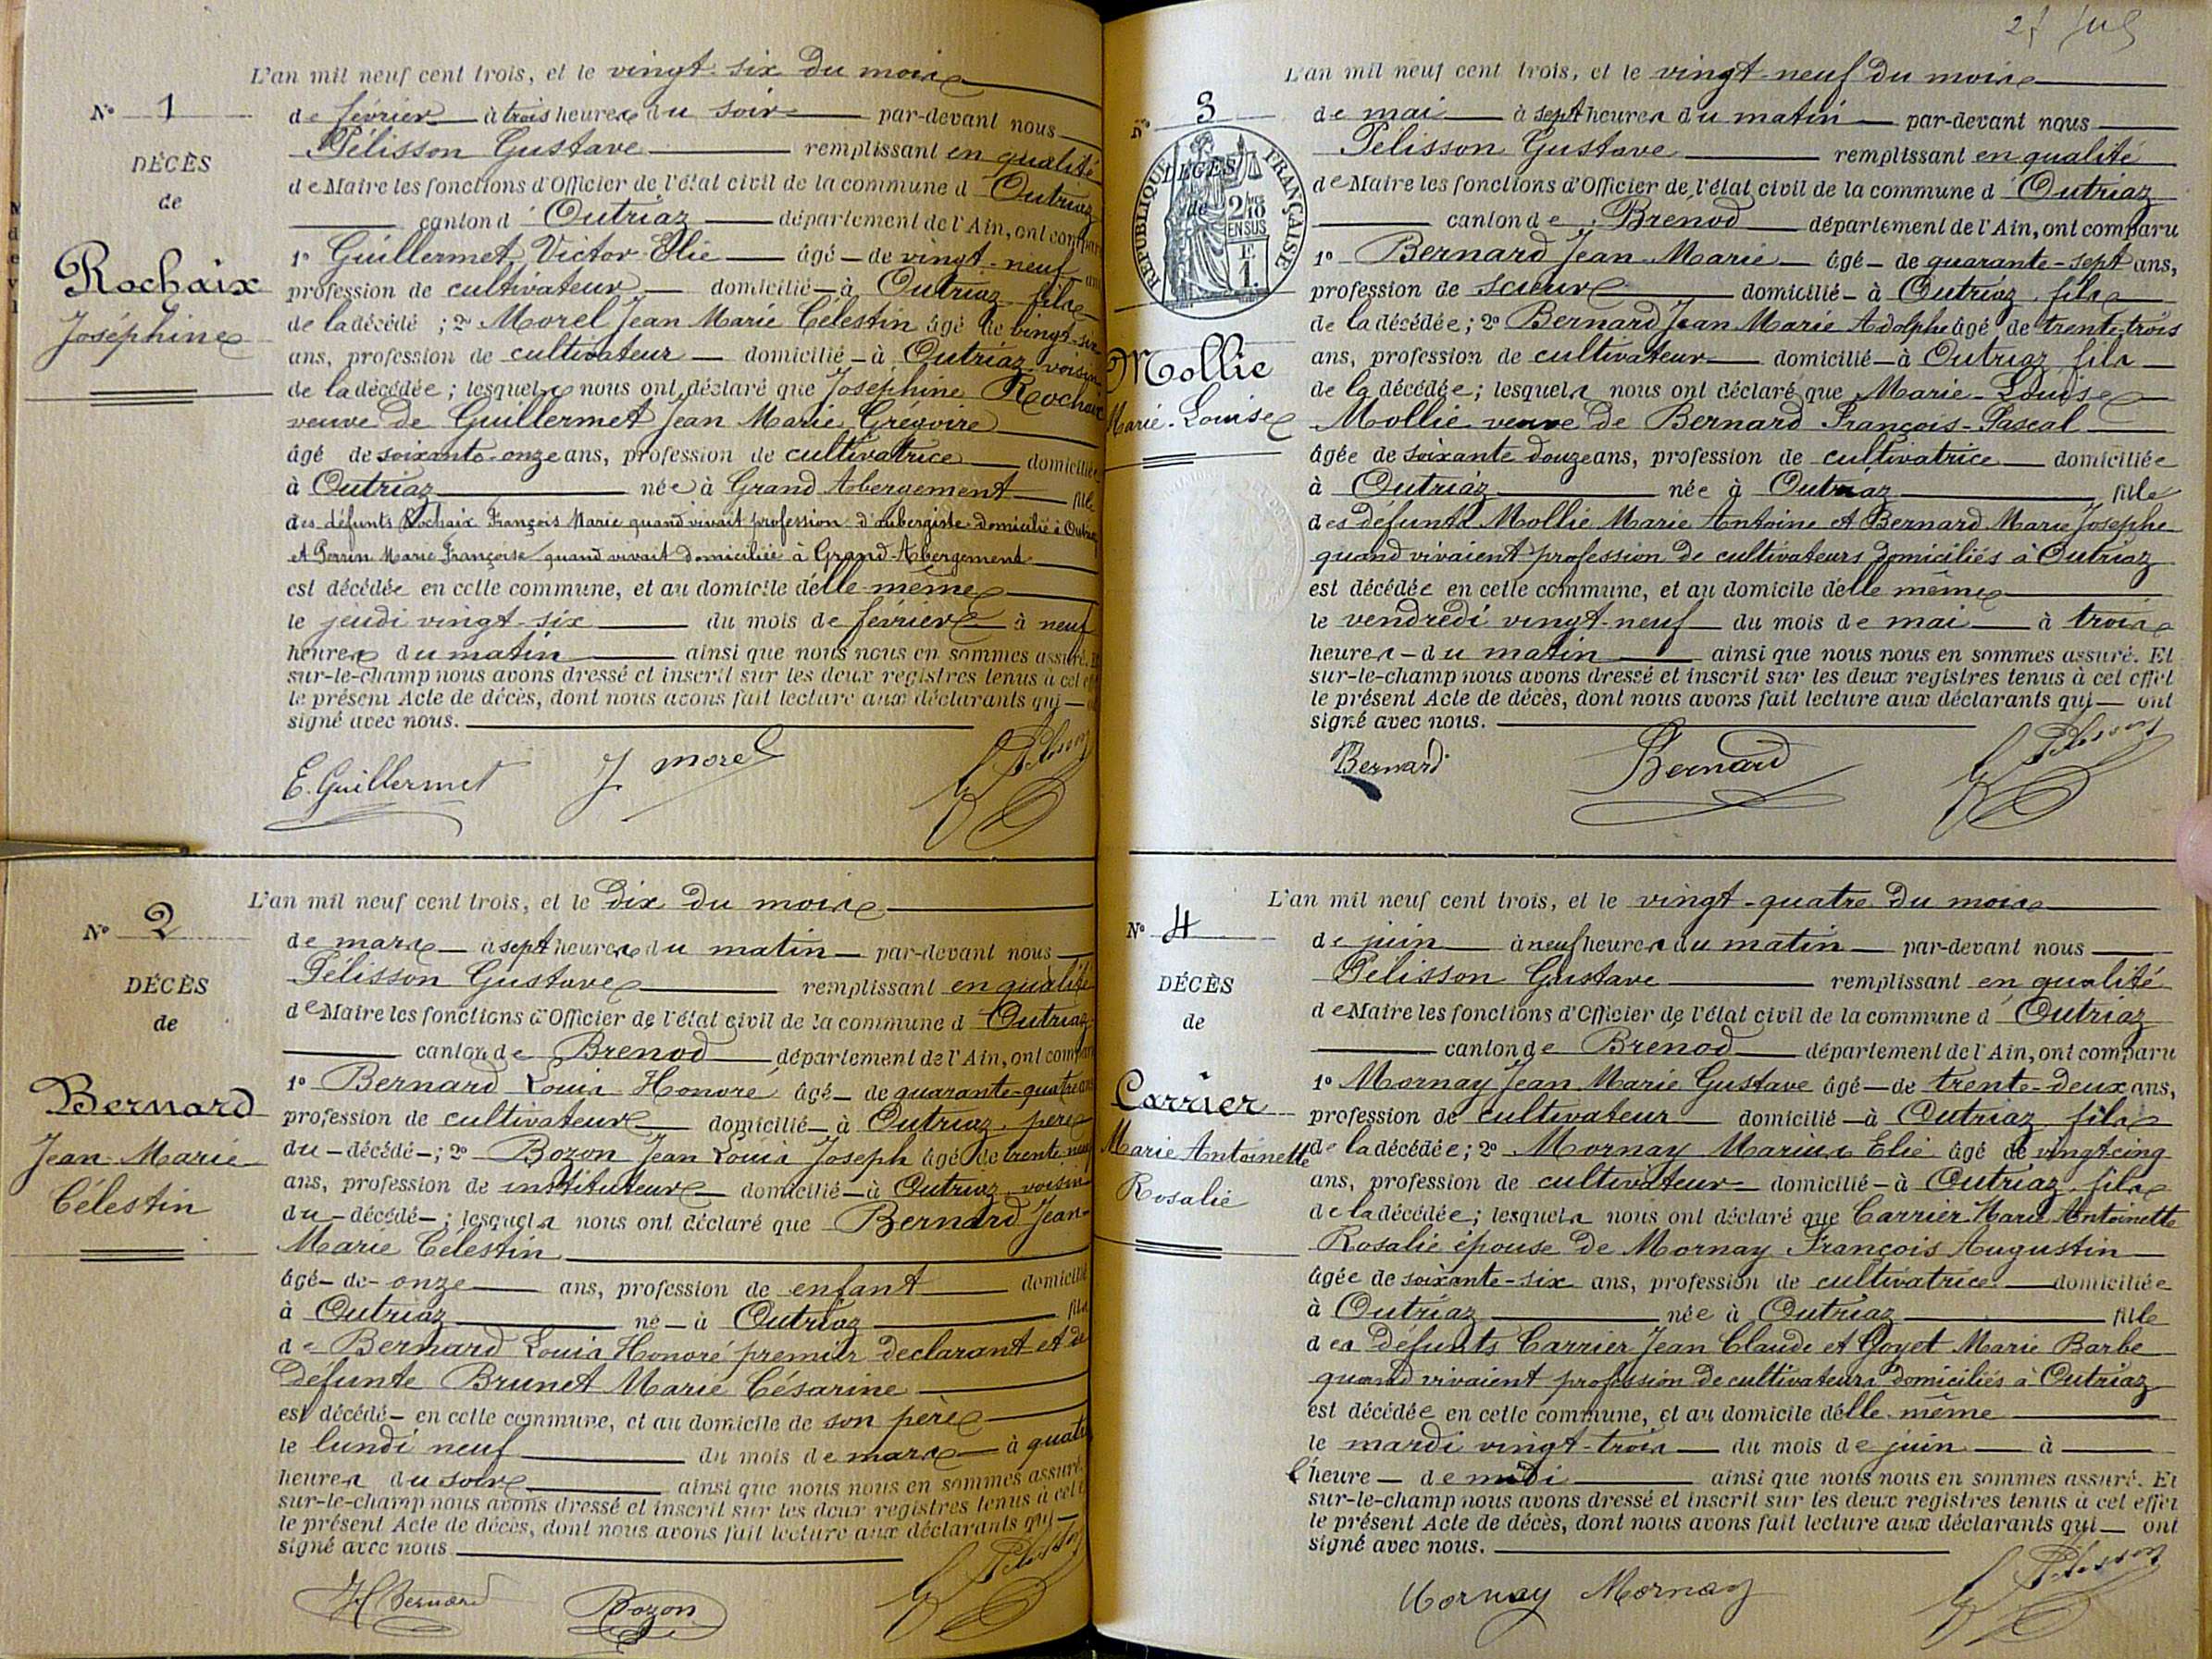 L'an mil neuf cent trois, et le vingt-six du mois
N° 1
de février à trois heures du soir par-devant nous
Pélisson Gustave remplissant en qualité
DÉCÈS
de Maire les fonctions d'Officier de l'état civil de la commune d'Outriaz
de
canton d'Outriaz département de l'Ain, ont comparu
1° Guillermet, Victor Elie âgé de vingt-neuf ans
Rochaix
profession de cultivateur domicilié à Outriaz fils
Joséphine
de la décédé ; 2° Morel Jean Marie Célestin âgé de vingt-six
ans, profession de cultivateur domicilié à Outriaz voisin
de la décédée ; lesquels nous ont déclaré que Joséphine Rochaix
veuve de Guillermet Jean Marie Grégoire
âgé de soixante-onze ans, profession de cultivatrice domiciliée
à Outriaz née à Grand Abergement fille
des défunts Rochaix François Marie quand vivait profession d'aubergiste domicilié à Outriaz
et Perrin Marie Françoise quand vivait domiciliée à Grand-Abergement
est décédée en cette commune, et au domicile d'elle même
le jeudi vingt-six du mois de février à neuf
heures du matin ainsi que nous nous en sommes assuré. Et
sur-le-champ nous avons dressé et inscrit sur les deux registres tenus à cet effet
le présent Acte de décès, dont nous avons fait lecture aux déclarants qui ont
signé avec nous.
E. Guillermet J. Morel G. Pélisson
L'an mil neuf cent trois, et le dix du mois
N° 2
de mars à sept heures du matin par-devant nous
Pélisson Gustave remplissant en qualité
DÉCÈS
de Maire les fonctions d'Officier de l'état civil de la commune d'Outriaz
de
canton de Brenod département de l'Ain, ont comparu
1° Bernard Louis Honoré âgé de quarante-quatre ans
Bernard
profession de cultivateur domicilié à Outriaz père
Jean Marie
du décédé ; 2° Bozon Jean Louis Joseph âgé de trente neuf
ans, profession de instituteur domicilié à Outriaz voisin
Célestin
du décédé ; lesquels nous ont déclaré que Bernard Jean-
Marie Célestin
âgé de onze ans, profession de enfant domicilié
à Outriaz né à Outriaz fils
de Bernard Louis Honoré premier declarant et de
défunte Brunet Marie Césarine
est décédé en cette commune, et au domicile de son père
le lundi neuf du mois de mars à quatre
heures du soir ainsi que nous nous en sommes assuré.
sur-le-champ nous avons dressé et inscrit sur les deux registres tenus à cet
le présent Acte de décès, dont nous avons fait lecture aux déclarants qui
signé avec nous
H Bernard Bozon G. Pélisson
L'an mil neuf cent trois, et le vingt-neuf du mois
N° 3
de mai à sept heures du matin par-devant nous
Pélisson Gustave remplissant en qualité
DÉCÈS
RÉPUBLIQUE FRANÇAISE
2/10
EN SUS
1.
de Maire les fonctions d'Officier de l'état civil de la commune d'Outriaz
de
canton de Brenod département de l'Ain, ont comparu
1° Bernard Jean Marie âgé de quarante-sept ans,
profession de scieur domicilié à Outriaz fils
de la décédée ; 2° Bernard Jean Marie Adolphe âgé de trente-trois
Mollie
ans, profession de cultivateur domicilié à Outriaz fils
de la décédée ; lesquels nous ont déclaré que Marie-Louise
Marie-Louise
Mollie veuve de Bernard François-Pascal
âgée de soixante douze ans, profession de cultivatrice domiciliée
à Outriaz née à Outriaz fille
des défunts Mollie Marie Antoine et Bernard Marie Josephe
quand vivaient profession de cultivateurs domiciliés à Outriaz
est décédée en cette commune, et au domicile d'elle même
le vendredi vingt-neuf du mois de mai à trois
heures du matin ainsi que nous nous en sommes assuré. Et
sur-le-champ nous avons dressé et inscrit sur les deux registres tenus à cet effet
le présent Acte de décès, dont nous avons fait lecture aux déclarants qui ont
signé avec nous.
Bernard Bernard G. Pélisson
L'an mil neuf cent trois, et le vingt-quatre du mois
N° 4
de juin à neuf heures du matin par-devant nous
Pélisson Gustave remplissant en qualité
DÉCÈS
de Maire les fonctions d'Officier de l'état civil de la commune d'Outriaz
de
canton de Brenod département de l'Ain, ont comparu
1° Mornay Jean Marie Gustave âgé de trente-deux ans,
Carrier
profession de cultivateur domicilié à Outriaz fils
Marie Antoinette
de la décédée ; 2° Mornay Marius Elie âgé de vingt cinq
ans, profession de cultivateur domicilié à Outriaz fils
Rosalie
de la décédée ; lesquels nous ont déclaré que Carrier Marie Antoinette
Rosalie épouse de Mornay François Augustin
âgée de soixante-six ans, profession de cultivatrice domiciliée
à Outriaz née à Outriaz fille
des défunts Carrier Jean Claude et Goyet Marie Barbe
quand vivaient profession de cultivateurs domiciliés à Outriaz
est décédée en cette commune, et au domicile d'elle même
le mardi vingt-trois du mois de juin à
l'heure de midi ainsi que nous nous en sommes assuré. Et
sur-le-champ nous avons dressé et inscrit sur les deux registres tenus à cet effet
le présent Acte de décès, dont nous avons fait lecture aux déclarants qui ont
signé avec nous.
Mornay Mornay G. Pélisson